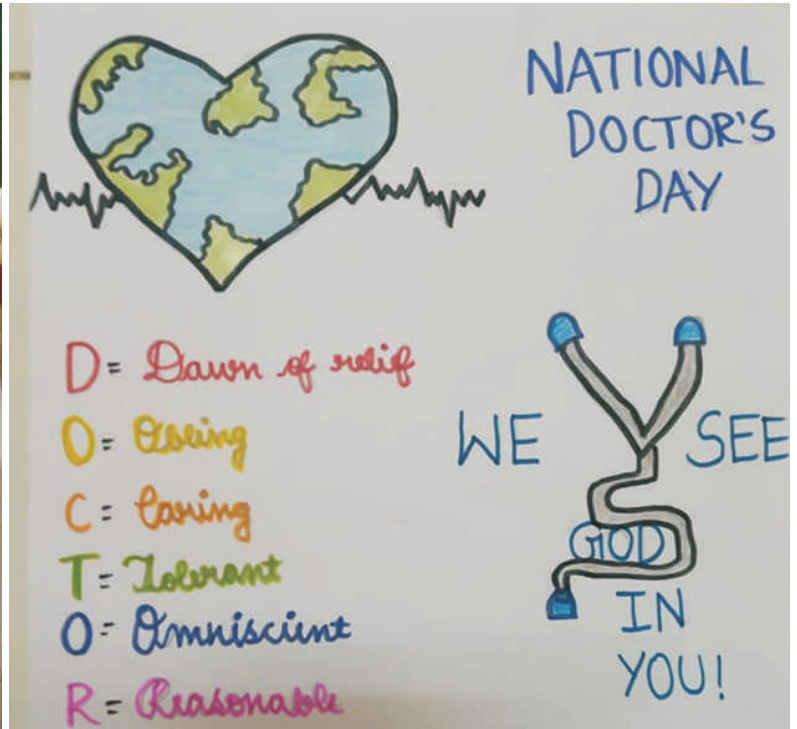 NATIONAL
DOCTOR'S
DAY
D = Dawn of relif
O =
C = Caring
T = Tolerant
O = Omniscient
R = Reasonable
WE SEE
GOD
IN
YOU!